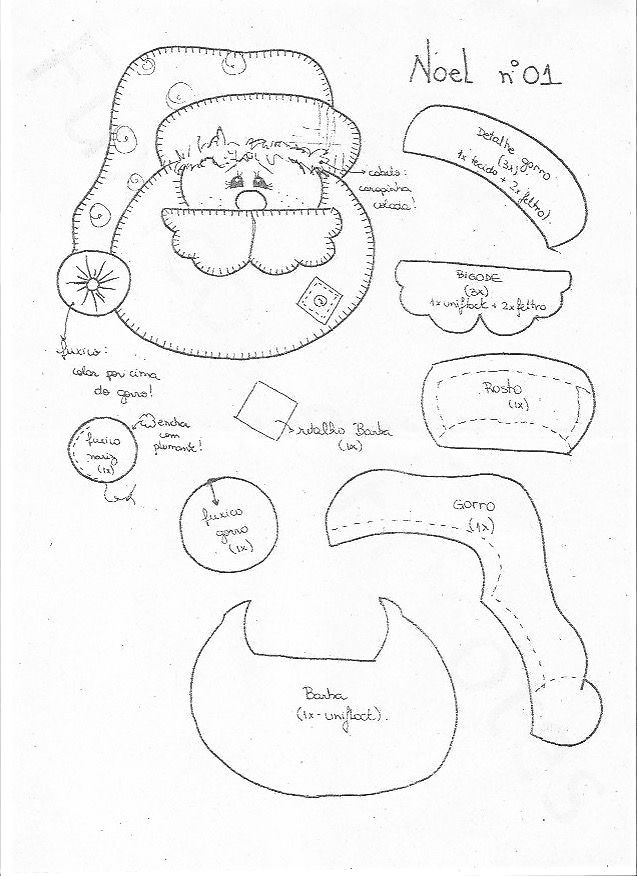 Noel nº 01
Detalhe gorro
(3x)
1x tecido + 2x feltro).
cabelo:
carapinha
colada!
BIGODE
(3x)
1x uniflock + 2x feltro
fuxico:
colar por cima
do gorro!
Rosto
(1x)
encha
com
plumante!
fuxico
nariz
(1x)
retalho Barba
(1x)
Gorro
(1x)
fuxico
gorro
(1x)
Barba
(1x - uniflock).